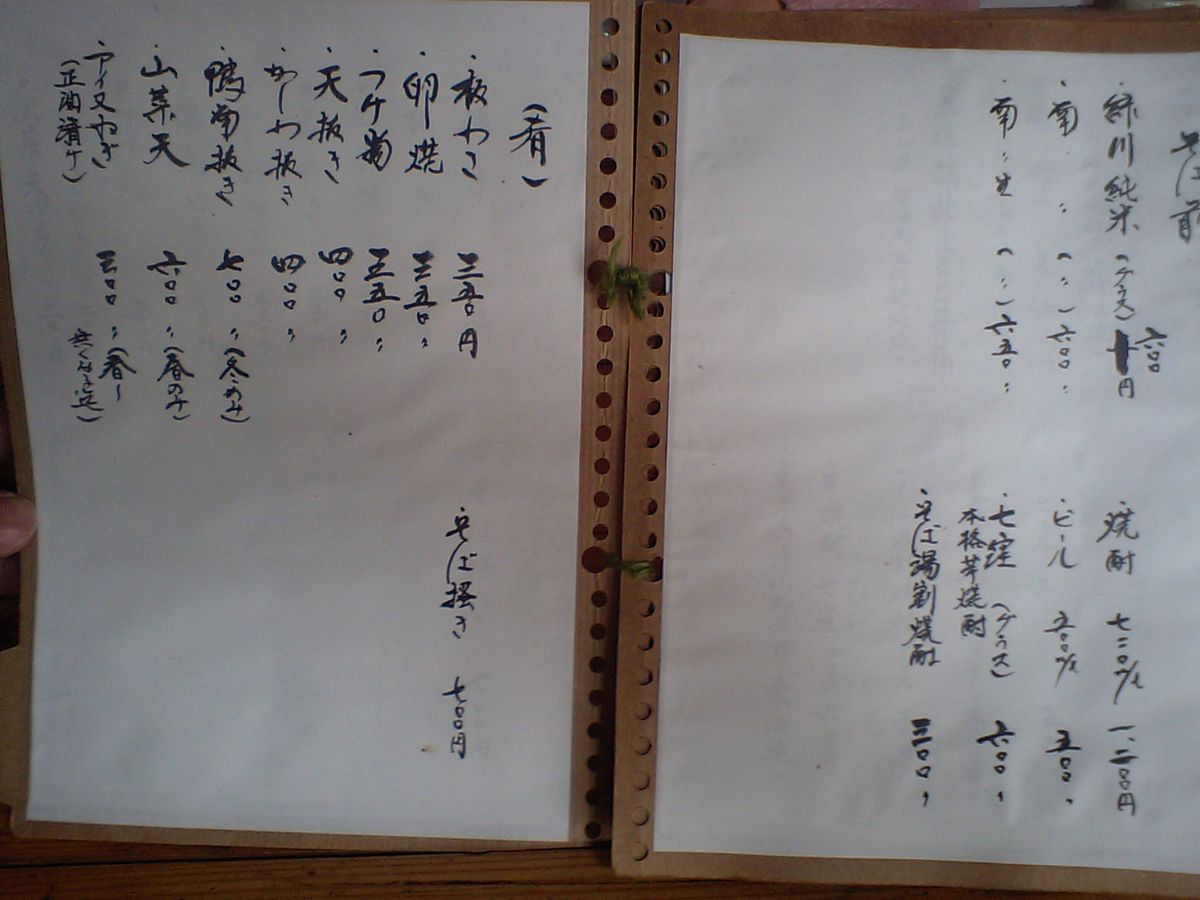 そば前
緑川純米(グラス)六〇〇円
・〃 〃 (〃)六〇〇〃
〃 〃 生 (〃)六五〇〃
焼酎 七二〇㎖ 一、二〇〇円
・ビール 五〇〇㎖ 五〇〇〃
・七窪(グラス) 六〇〇〃
本格芋焼酎
・そば湯割焼酎 三〇〇〃
(肴)
・板わさ 三五〇円
・卵焼 三五〇〃
・つけ物 五五〇〃
・天抜き 四〇〇〃
・かしわ抜き 四〇〇〃
・鴨南抜き 七〇〇〃(冬のみ)
・山菜天 六〇〇〃(春のみ)
・アイヌねぎ 三〇〇〃(春〜
(正油漬け) 無くなる迄)
・そば掻き 七〇〇円